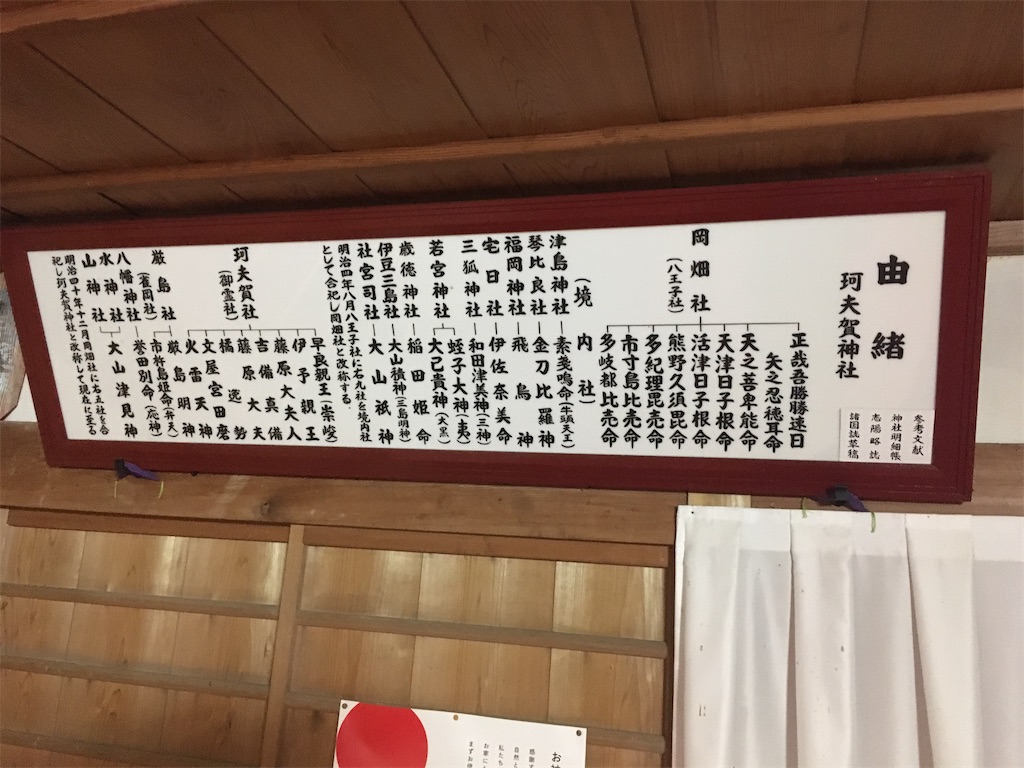 由緒
珂夫賀神社
参考文献
神社明細帳
志陽略誌
諸国誌草稿
岡畑社
(八王子社)
正哉吾勝勝速日
矢之忍徳耳命
天之善卑能命
天津日子根命
活津日子根命
熊野久須毘命
多紀理毘売命
市寸島比売命
多岐都比売命
(境内社)
津島神社 素戔嗚命(牛頭天王)
琴比良社 金刀比羅神
福岡神社 飛鳥神
宅日社 伊佐奈美命
三狐神社 和田津美神(三神)
若宮神社 蛭子大神(夷)
大己貴神(大黒)
歳徳神社 稲田姫命
伊豆三島社 大山積神(三島明神)
社宮司社 大山祇神
明治四年八月八王子社に右九社を境内社
として合祀し岡畑社と改称する。
珂夫賀社
(御霊社)
早良親王(崇峻)
伊予親王
藤原大夫人
吉備真備
藤原大夫
橘逸勢
文屋宮田麿
火雷天神
厳島社
(雀岡社)
厳島明神
市杵島姫命(弁天)
八幡神社 誉田別命(応神)
水神社
山神社
大山津見神
明治四十年十二月岡畑社に右五社を合
祀し珂夫賀神社と改称して現在に至る